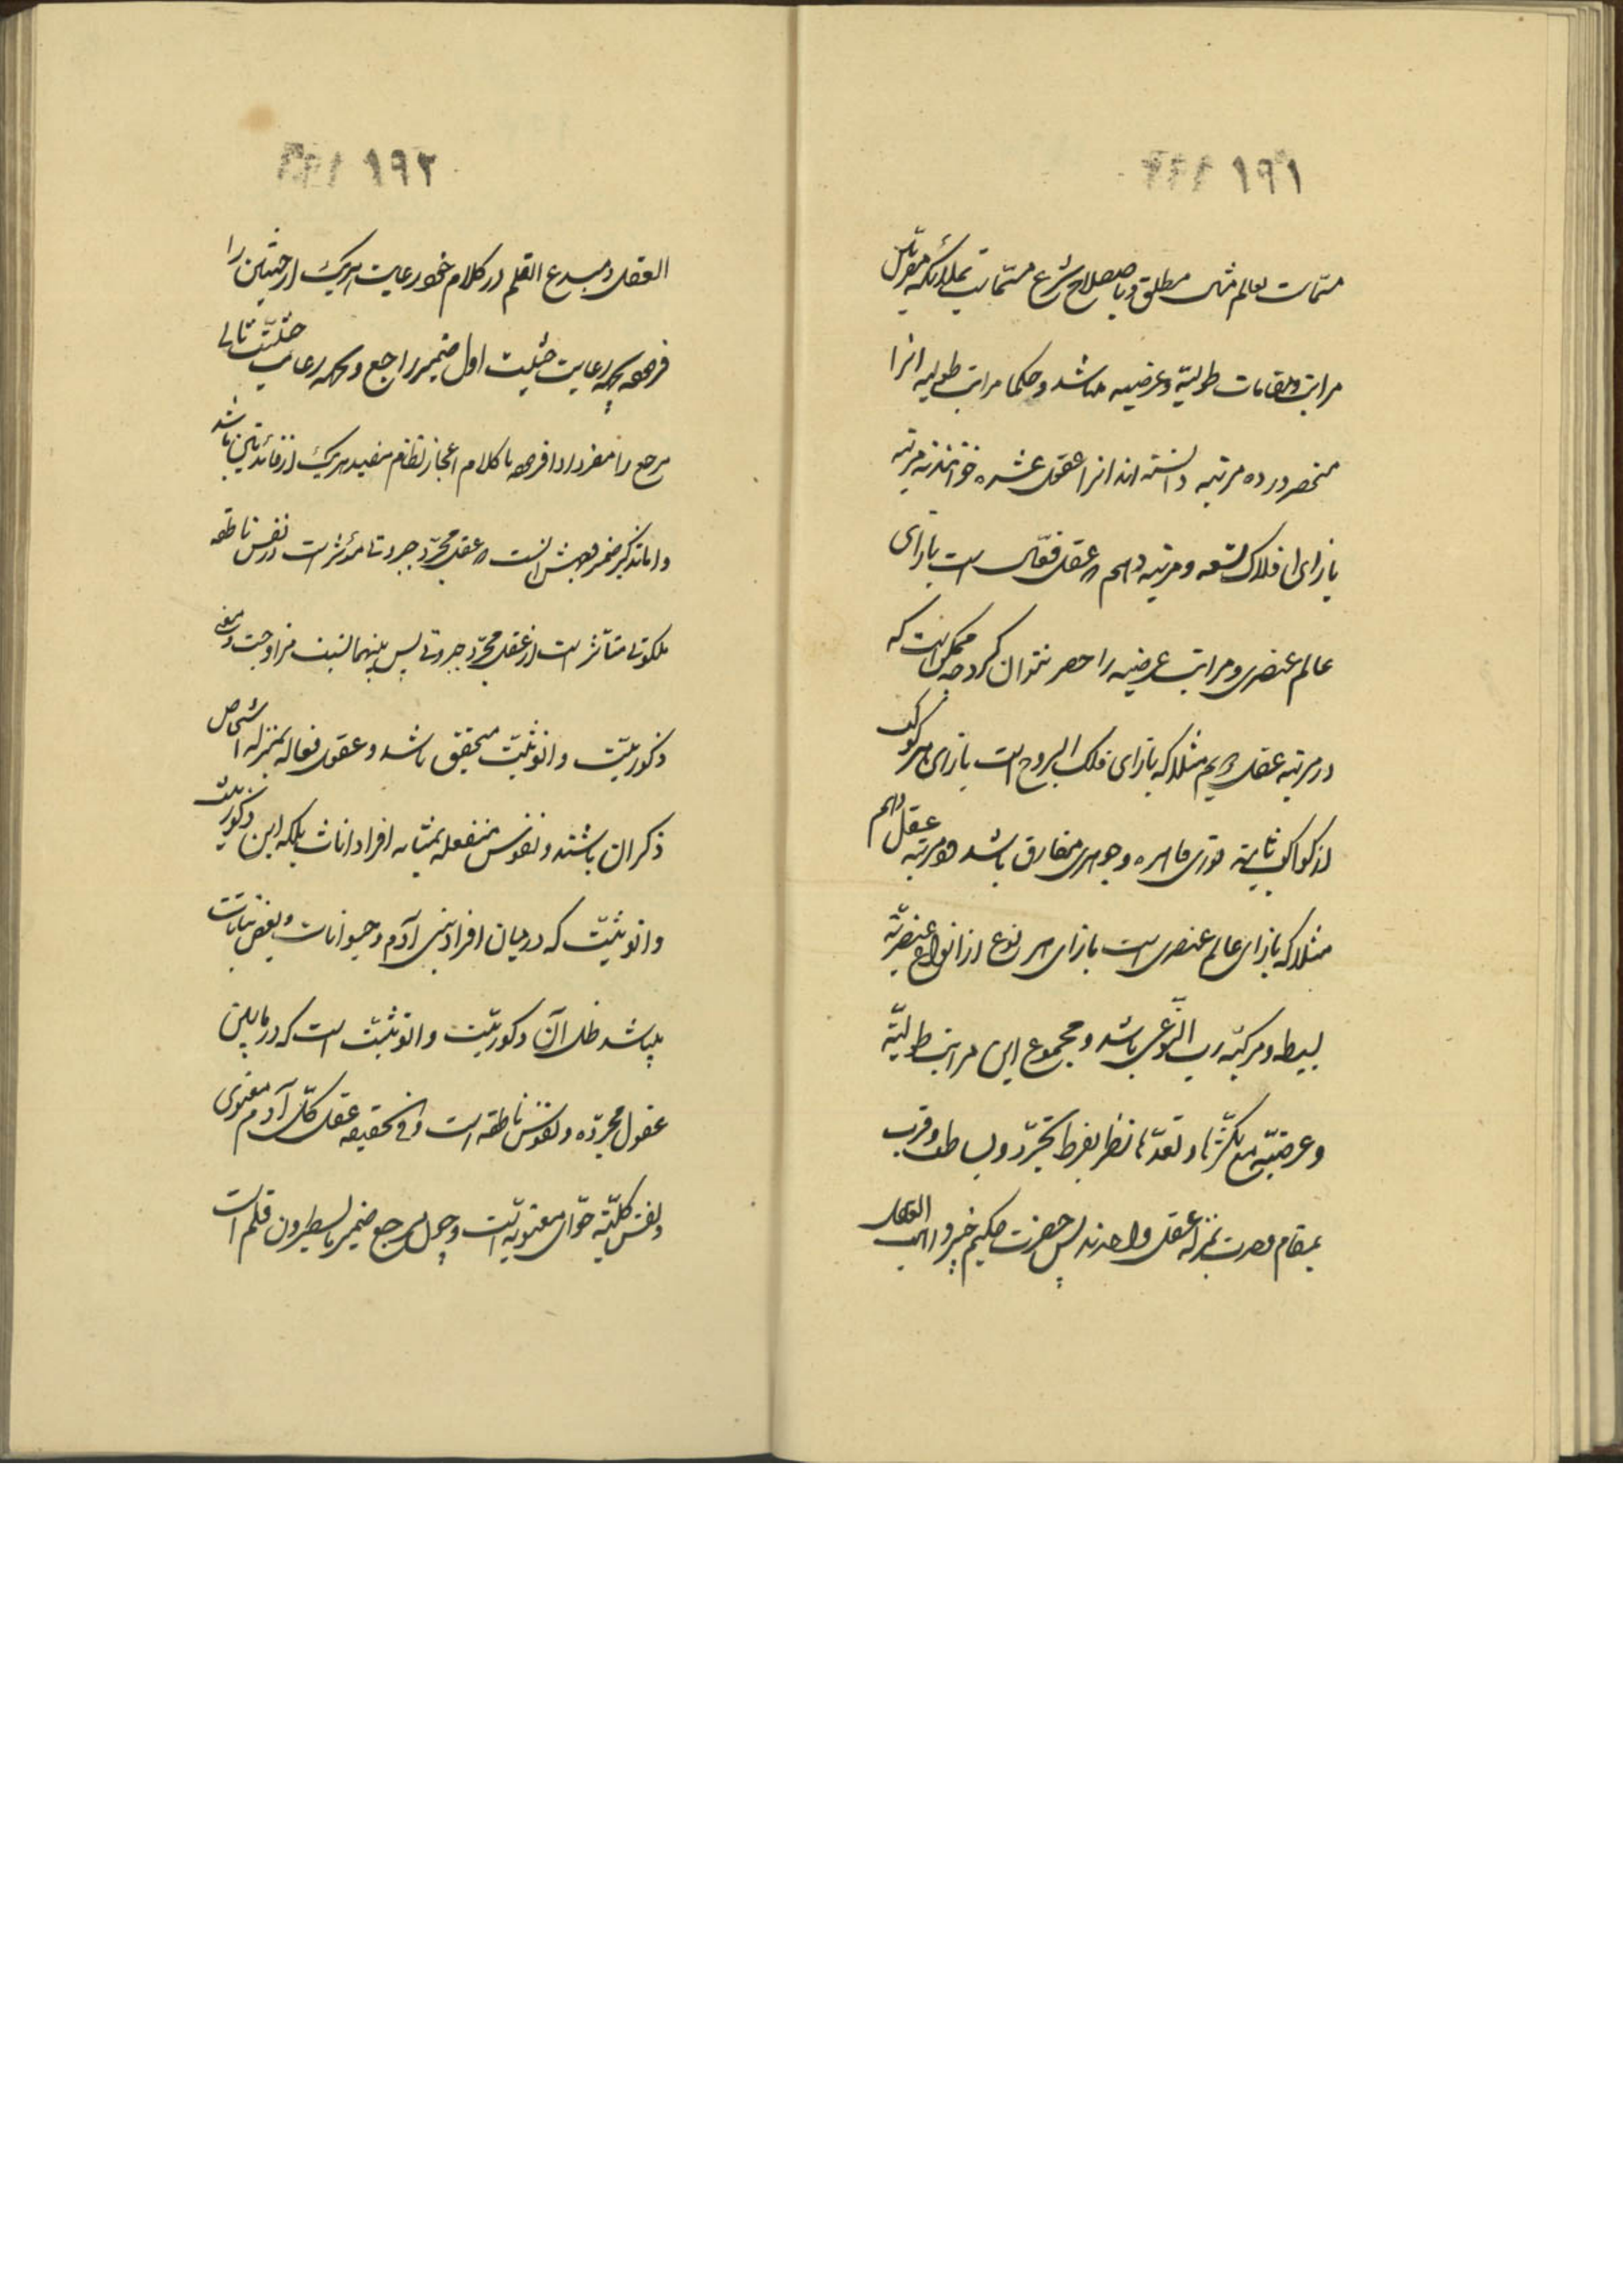 ۱۹۱
مسمّات بعالم مثال مطلق و باصطلاح شرع مسمّات بملائکه مقرّبین
مراتب و مقامات طولیّه و عرضیه میباشد و حکما مراتب طولیه آنرا
منحصر در ده مرتبه دانسته اند آنرا عقول عشره خوانند نه مرتبه
بازای افلاک تسعه و مرتبه دهم که عقل فعّال است بازای
عالم عنصری و مراتب عرضیه را حصر نتوان کرد چه ممکن است که
در مرتبه عقل دویم مثلا که بازای فلک البروج است بازای هر کوکب
از کواکب ثابته نوری قاهره و جوهری مفارق باشد و در مرتبه عقل دهم
مثلا که بازای عالم عنصری است بازای هر نوع از انواع عنصریّه
بسیط و مرکبّه ربّ النّوعی باشد و مجموع این مراتب طولیّه
و عرضیّه مع تکثّرها و تعدّدها نظر بفرط تجرّد و بساطت و قرب
بمقام وحدت بمنزله عقل واحدند پس حضرت حکیم خبیر و واهب العقل
۱۹۲
العقل و مبدع القلم در کلام خود رعایت هریک از حیثیتین را
فرموده بجهه رعایت حیثیت اول ضمیر راجع و بجهه رعایت حیثیّت ثانی
مرجع را مفرد ادا فرموده تا کلام اعجاز نظام مفید هریک از فائدتین باشد
و اما تذکیر ضمیر وجهش آنست که عقل مجرّد جبروتی مؤثر است در نفس ناطقه
ملکوتی متأثر است از عقل مجرّد جبروتی پس بینهما نسبت مزاوجت و معنی
ذکوریّت و انوثیّت متحقق باشد و عقول فعاله بمنزله اشخاص
ذکران باشند و نفوس منفعله بمثابه افراد اناث بلکه این ذکوریّت
و انوثیّت که در میان افراد بنی آدم و حیوانات و بعض نباتات
میباشد ظل آن ذکوریّت و انوثیّت است که در مابین
عقول مجرّده و نفوس ناطقه است و فی الحقیقه عقل کلّ آدم معنوی
و نفس کلّیّه حوّای معنویّه است و چون مرجع ضمیر یسطرون قلم است